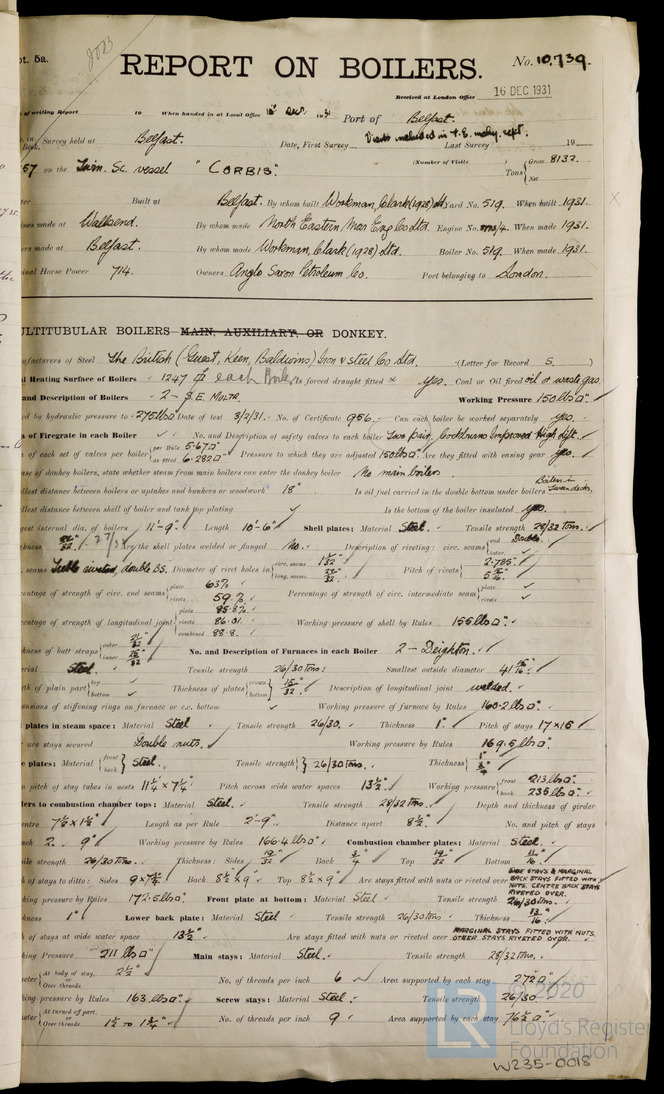 pt. 5a.
8023
REPORT ON BOILERS.
No. 10,739.
Received at London Office 16 DEC 1931
of writing Report 19 When handed in at Local Office 1931 Port of Belfast.
in Survey held at Belfast. Date, First Survey Visits included in Last Survey 19
57 on the Twin Sc. vessel "CORBIS". (Number of Visits ) Tons { Gross 8132. Net
Built at Belfast. By whom built Workman, Clark (1928) Ltd. Yard No. 519. When built 1931.
made at Wallsend. By whom made North Eastern Mar Eng Co Ltd. Engine No. When made 1931.
made at Belfast. By whom made Workman, Clark (1928) Ltd. Boiler No. 519. When made 1931.
Horse Power 714. Owners Anglo Saxon Petroleum Co. Port belonging to London.
ULTITUBULAR BOILERS MAIN, AUXILIARY, OR DONKEY.
of Steel The British (Guest, Keen, Baldwins) Iron & Steel Co Ltd. (Letter for Record S. )
Heating Surface of Boilers 1247 each Boiler Is forced draught fitted yes. Coal or Oil fired oil or waste gas.
and Description of Boilers 2 - S.E. Mult. Working Pressure 150 lbs □"
by hydraulic pressure to 275 lbs □" Date of test 3/2/31. No. of Certificate 956. Can each boiler be worked separately yes.
of Firegrate in each Boiler No. and Description of safety valves to each boiler Two pair, Cockburns Improved High lift.
of each set of valves per boiler { per Rule 5.67 □" as fitted 6.282 □" Pressure to which they are adjusted 150 lbs □" Are they fitted with easing gear yes.
case of donkey boilers, state whether steam from main boilers can enter the donkey boiler No main boilers
distance between boilers or uptakes and bunkers or woodwork 18" Is oil fuel carried in the double bottom under boilers Boilers in Tween decks.
distance between shell of boiler and tank top plating Is the bottom of the boiler insulated yes.
internal dia. of boilers 11'-9". Length 10'-6" Shell plates: Material Steel. Tensile strength 28/32 Tons.
Are the shell plates welded or flanged No. Description of riveting: circ. seams { end Double.
seams Treble riveted, double B.S. Diameter of rivet holes in { circ. seams long. seams Pitch of rivets { 2.785"
percentage of strength of circ. end seams { plate 63% rivets 59%. Percentage of strength of circ. intermediate seam { plate rivets
percentage of strength of longitudinal joint { plate 85.8% rivets 86.01 combined 88.8. Working pressure of shell by Rules 155 lbs □".
of butt straps { outer inner No. and Description of Furnaces in each Boiler 2 - Deighton.
Steel. Tensile strength 26/30 Tons. Smallest outside diameter
of plain part { top bottom Thickness of plates { crown bottom 15/32" Description of longitudinal joint welded.
of stiffening rings on furnace or c.c. bottom Working pressure of furnace by Rules 160.2 lbs □"
plates in steam space: Material Steel Tensile strength 26/30. Thickness 1" Pitch of stays 17 x 16
are stays secured Double nuts. Working pressure by Rules 169.5 lbs □"
plates: Material { front back } Steel. Tensile strength } 26/30 Tons. Thickness { 1" 3/4"
pitch of stay tubes in nests 11¼ x 7¼" Pitch across wide water spaces 13½" Working pressure { front 213 lbs □" back 235 lbs □"
to combustion chamber tops: Material Steel. Tensile strength 28/32 Tons. Depth and thickness of girder
centre 7½ x 1½" Length as per Rule 2'-9". Distance apart 8½" No. and pitch of stays
2. 9" Working pressure by Rules 166.4 lbs □" Combustion chamber plates: Material Steel.
Tensile strength 26/30 Tons. Thickness: Sides 19/32" Back 3/4" Top 19/32" Bottom 11/16"
of stays to ditto: Sides 9 x 7¾" Back 8½ x 9" Top 8½ x 9" Are stays fitted with nuts or riveted over SIDE STAYS & MARGINAL BACK STAYS FITTED WITH NUTS. CENTRE BACK STAYS RIVETED OVER.
pressure by Rules 172.5 lbs □" Front plate at bottom: Material Steel Tensile strength 26/30 Tons.
1" Lower back plate: Material Steel Tensile strength 26/30 Tons. Thickness 13/16"
of stays at wide water space 13½" Are stays fitted with nuts or riveted over MARGINAL STAYS FITTED WITH NUTS. OTHER STAYS RIVETED OVER.
Pressure 211 lbs □" Main stays: Material Steel. Tensile strength 28/32 Tons.
{ At body of stay, or Over threads 2½" No. of threads per inch 6 Area supported by each stay 272 □"
pressure by Rules 163 lbs □" Screw stays: Material Steel. Tensile strength 26/30
{ At turned off part, or Over threads No. of threads per inch 9 Area supported by each stay 76½ □"
© 2020
LR
Lloyd's Register
Foundation
W235-0018